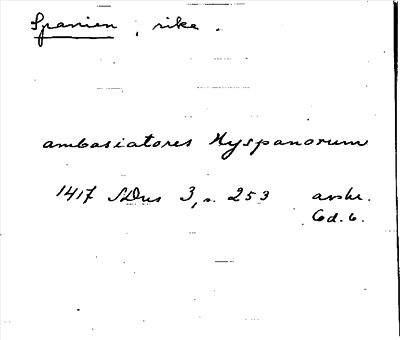 Spanien, rike.
ambasiatores Hyspanorum
1417 SDns 3, s. 253 avskr.
Cd. 6.